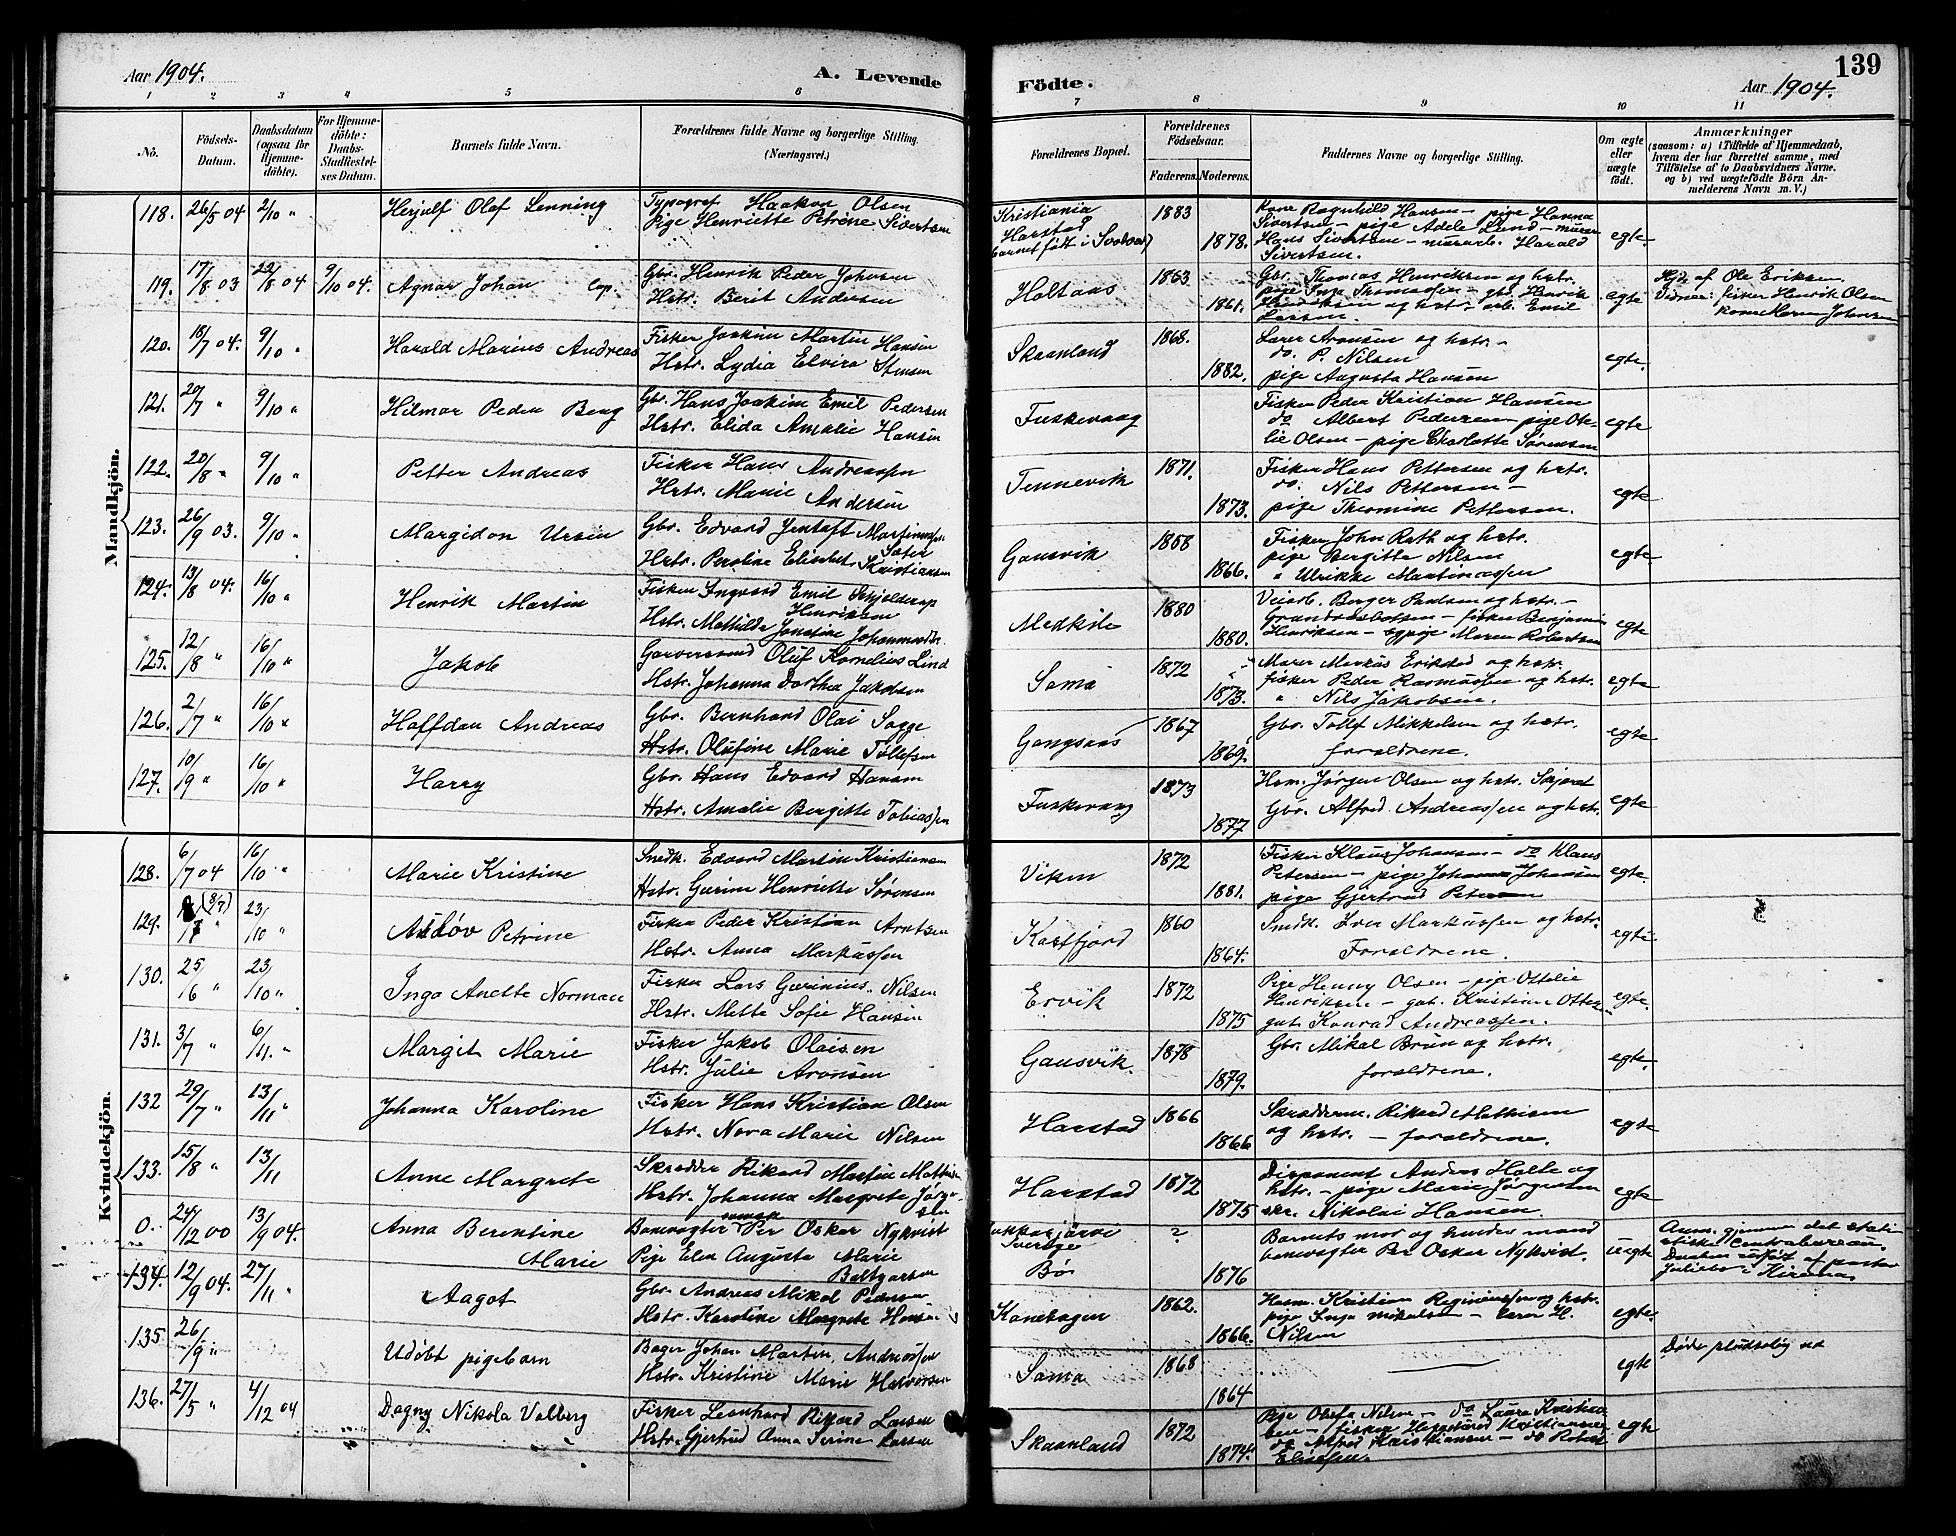 Aar 1904.
A. Levende
Födte.
Aar 1904.
139
1 2 3 4 5 6 7 8 9 10 11
No.
Födsels-Datum.
Daabsdatum (ogsaa for Hjemmedöbte).
For Hjemmedöbte: Daabs-Stadfæstelses Datum.
Barnets fulde Navn.
Forældrenes fulde Navne og borgerlige Stilling. (Næringsvei.)
Forældrenes Bopæl.
Forældrenes Födselsaar.
Faderens. Moderens.
Faddernes Navne og borgerlige Stilling.
Om ægte eller uægte födt.
Anmærkninger
(saasom: a) i Tilfælde af Hjemmedaab, hvem der har forrettet samme, med Tilföielse af to Daabsvidners Navne, og b) ved uægtefödte Börn Anmelderens Navn m. V.)
Mandkjön.
118. 26/5 04 2/10 " Herjulf Olaf Lenning
Typograf Haakon Olsen
Pige Henriette Petrine Sivertsen
Kristiania
Harstad
barnet født i Svolvær)
1883
1878.
Kone Ragnhild Hansen – pige Hanna
Sivertsen – pige Adele Lund – murer
Hans Sivertsen – murarb. Harald
Sivertsen.
egte
119. 17/8 03 22/8 04 9/10 04. Agnar Johan
Gbr. Henrik Peder Johnsen
Hstr. Berit Andersen
Holtaas
1863
1861.
Gbr. Thomas Henriksen og hstr.
pige Inga Thomassen – gbr. Henrik
Hindriksen og hstr. arb. Emil
Larsen.
egte
Hjd. af Ole Eriksen
Vidner: fisker Henrik Olsen
kone Maren Johnsen
120. 18/7 04. 9/10 " Harald Marius Andreas
Fisker Joakim Martin Hansen
Hstr. Lydia Elvira Stensen
Skaanland
1868.
1882.
Lærer Aronsen og hstr. –
do. P. Nilsen
pige Augusta Hansen
egte.
121. 20/7 " 9/10 " Hilmar Peder Berg
Gbr. Hans Joakim Emil Pedersen
Hstr. Elida Amalie Hansen
Fuskevaag
Fisker Peder Kristian Hansen
do Albert Pedersen – pige Otelie Olsen – pige Charlotte Sørensen
egte
122. 20/8 " 9/10 " Petter Andreas
Fisker Hans Andreassen
Hstr. Marie Andersen
Tennevik
1871.
1873.
Fisker Hans Pettersen og hstr.
do. Nils Pettersen –
pige Thomine Pettersen.
egte
123. 26/9 03. 9/10 " Margidon Ursin
Gbr. Edvard Jentoft Martinussen
Hstr. Peroline Elisabet Kristiansen
Gausvik
1858
1866.
Fisker John Rath og hstr.
pige Bergitte Nilsen
" Ulrikke Martinussen
egte
124. 13/8 04. 16/10 " Henrik Martin
Fisker Ingvard Emil Skjolderup
Henriksen
Hstr. Mathilde Jonetine
Medkile
1880
1880.
Veiarb. Berger Paulsen og hstr. –
fisker Benjamin
Henriksen – pige Maren Robertsen
egte
125. 12/8 " 16/10 " Jakob
Garversvend Oluf Kornelius Lind
Hstr. Johanna Dorthea Jakobsen
Sama
1872
1873.
Maler Markus Erikstad og hstr.
fisker Peder Rasmussen og hstr.
" Nils Jakobsen.
egte
126. 2/7 " 16/10 " Halfdan Andreas
Gbr. Bernhard Olai Sagge
Hstr. Olufine Marie Tollefsen
Gangsaas
1867
1869.
Gbr. Tollef Mikkelsen og hstr.
forældrene.
egte
127. 10/9 " 16/10 " Harry
Gbr. Hans Edvard Hansen
Hstr. Amalie Bergitte Tobiassen
Fuskevaag
1873
1877
Hsm. Jørgen Olsen og hstr.
Gbr. Alfred Andreassen og hstr.
egte
Kvindekjön.
128. 6/7 04 16/10 " Marie Kristine
Snedk. Edvard Martin Kristiansen
Hstr. Gurine Henriette Sørensen
Viken
1872
1881.
Fisker Klaus Johansen – do Klaus
Petersen – pige Johanna Johansen
pige Gjertrud Petersen
egte.
129. (3/7) " 23/10 " Aslöv Petrine
Fisker Peder Kristian Arntsen
Hstr. Anna Markussen
Kasfjord
1860
1864.
Snedk. Iver Markussen og hstr.
Forældrene.
egte
130. 25/6 " 23/10 " Inga Anette Norman
Fisker Lars Gærinius Nilsen
Hstr. Mette Sofie Hansen
Ervik
1872
1875
Pige Henny Olsen – pige Ottelie
Henriksen – gut. Kristian Ottesen
gut. Konrad Andreassen.
egte
131. 3/7 " 6/11. " Margit Marie
Fisker Jakob Olaisen
Hstr. Julie Aronsen
Gausvik.
1878
1879.
Gbr. Mikal Bruun og hstr.
forældrene.
egte.
132 29/7 " 13/11 " Johanna Karoline
Fisker Hans Kristian Olsen
Hstr. Nora Marie Nilsen
Harstad
1866
1866
Skrædderm. Rikard Mathisen
og hstr. – forældrene.
egte
133. 15/8 " 13/11 Anne Margrete
Skrædder Rikard Martin Mathisen
Hstr. Johanna Margrete Jørgensen
Harstad
1872
1875
Disponent Anders Holte og
hstr. – pige Marie Jørgensen
skr. Nikolai Hansen.
egte
0. 24/12 00 13/9 04. Anna Berentine
Marie
Banevogter svensk Per Oskar Nykvist
Pige Elen Augusta Marie
Baltzarsen
Jukkasjärvi
Sverige
Bø
?
1876
Barnets mor og hendes mand
banevogter Per Oskar Nykvist.
uegte
Anm. gjennem det statistiske Centralbureau.
Daaben udført af pastor
Julebo i Kiruna.
134. 12/9 04. 27/11 " Aagot
Gbr. Andreas Mikal Pedersen
Hstr. Karoline Margrete Hansen
Kanebogen
1862.
1866.
Husm. Kristian Reginiussen og hstr.
pige Inga Mikalsen – lærer H.
Nilsen
egte.
135. 26/9 " Udøbt pigebarn
Bager Johan Martin Andreassen
Hstr. Kristine Marie Halvorsen
Sama
1868
1864
egte
Døde pludselig ud
136. 27/5 " 4/12 04 Dagny Nikola Valberg
Fisker Leonhard Rikard Larsen
Hstr. Gjertrud Anna Serine Larsen
Skaanland
1872
1874.
Pige Olufa Nilsen – do Laura Kristiansen – fisker Kristiansen
do Alfred Kristiansen – do Robert
Eliassen.
egte